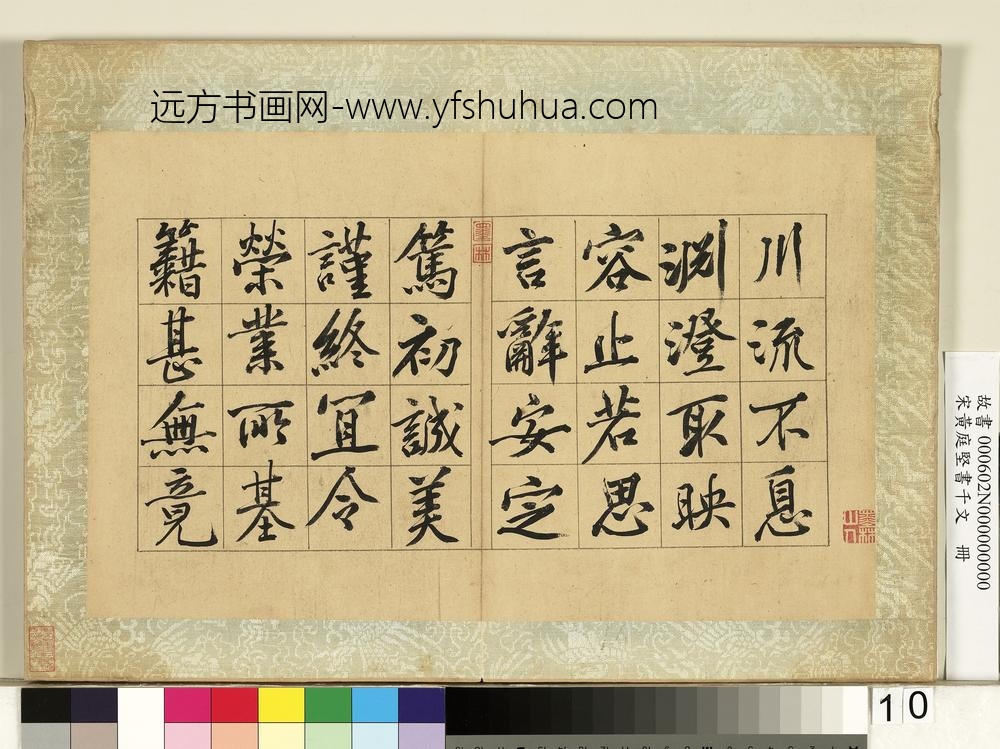 远方书画网-www.yfshuhua.com
川流不息
淵澄取映
容止若思
言辭安定
篤初誠美
謹終宜令
榮業所基
籍甚無竟
故書 000602N000000000
宋黃庭堅書千文 冊
10